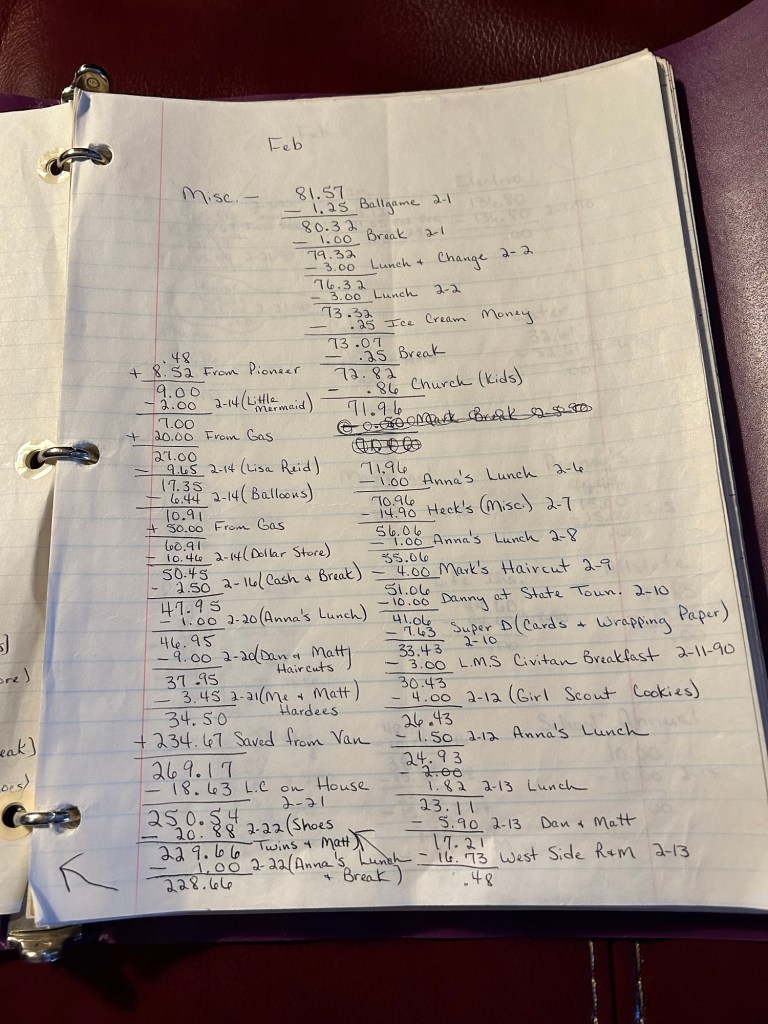 Feb
Misc. — 81.57
- 1.25 Ballgame 2-1
80.32
- 1.00 Break 2-1
79.32
- 3.00 Lunch + Change 2-2
76.32
- 3.00 Lunch 2-2
73.32
- .25 Ice Cream Money
73.07
- .25 Break
72.82
- .86 Church (Kids)
71.96
71.96
- 1.00 Anna's Lunch 2-6
70.96
- 14.90 Heck's (Misc.) 2-7
56.06
- 1.00 Anna's Lunch 2-8
55.06
- 4.00 Mark's Haircut 2-9
51.06
- 10.00 Danny at State Tourn. 2-10
41.06
- 7.63 Super D (Cards + Wrapping Paper)
2-10
33.43
- 3.00 L.M.S Civitan Breakfast 2-11-90
30.43
- 4.00 2-12 (Girl Scout Cookies)
26.43
- 1.50 2-12 Anna's Lunch
24.93
- 2.00
1.82 2-13 Lunch
23.11
- 5.90 2-13 Dan + Matt
17.21
- 16.73 West Side R+M 2-13
.48
.48
+ 8.52 From Pioneer
9.00
- 2.00 2-14 (Little
Mermaid)
7.00
+ 20.00 From Gas
27.00
- 9.65 2-14 (Lisa Reid)
17.35
- 6.44 2-14 (Balloons)
10.91
+ 50.00 From Gas
60.91
- 10.46 2-14 (Dollar Store)
50.45
- 2.50 2-16 (Cash + Break)
47.95
- 1.00 2-20 (Anna's Lunch)
46.95
- 9.00 2-20 (Dan + Matt)
Haircuts
37.95
- 3.45 2-21 (Me + Matt)
Hardees
34.50
+ 234.67 Saved from Van
269.17
- 18.63 L.C on House
2-21
250.54
- 20.88 2-22 (Shoes
Twins + Matt)
229.66
- 1.00 2-22 (Anna's Lunch
+ Break)
228.66